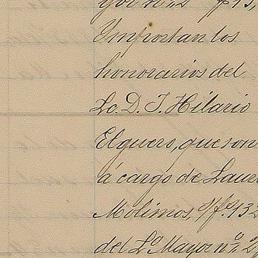 Ymportan los
honorarios del
Lo. D. J. Hilario
Elguero, que son
á cargo de Laure
Molinos, s/fs 132
del Lo Mayor no 2